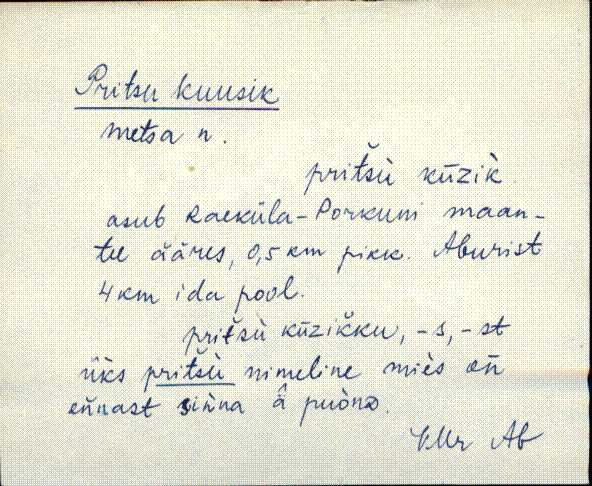 Pritsu kuusik
metsa n.
pritšù kūzik
asub Raeküla-Porkuni maan-
tee ääres, 0,5 km pikk. Aburist
4 km ida pool.
pritšù kūzikku, -s, -st
üks pritšù nimeline miès
sinna puòno
VMr